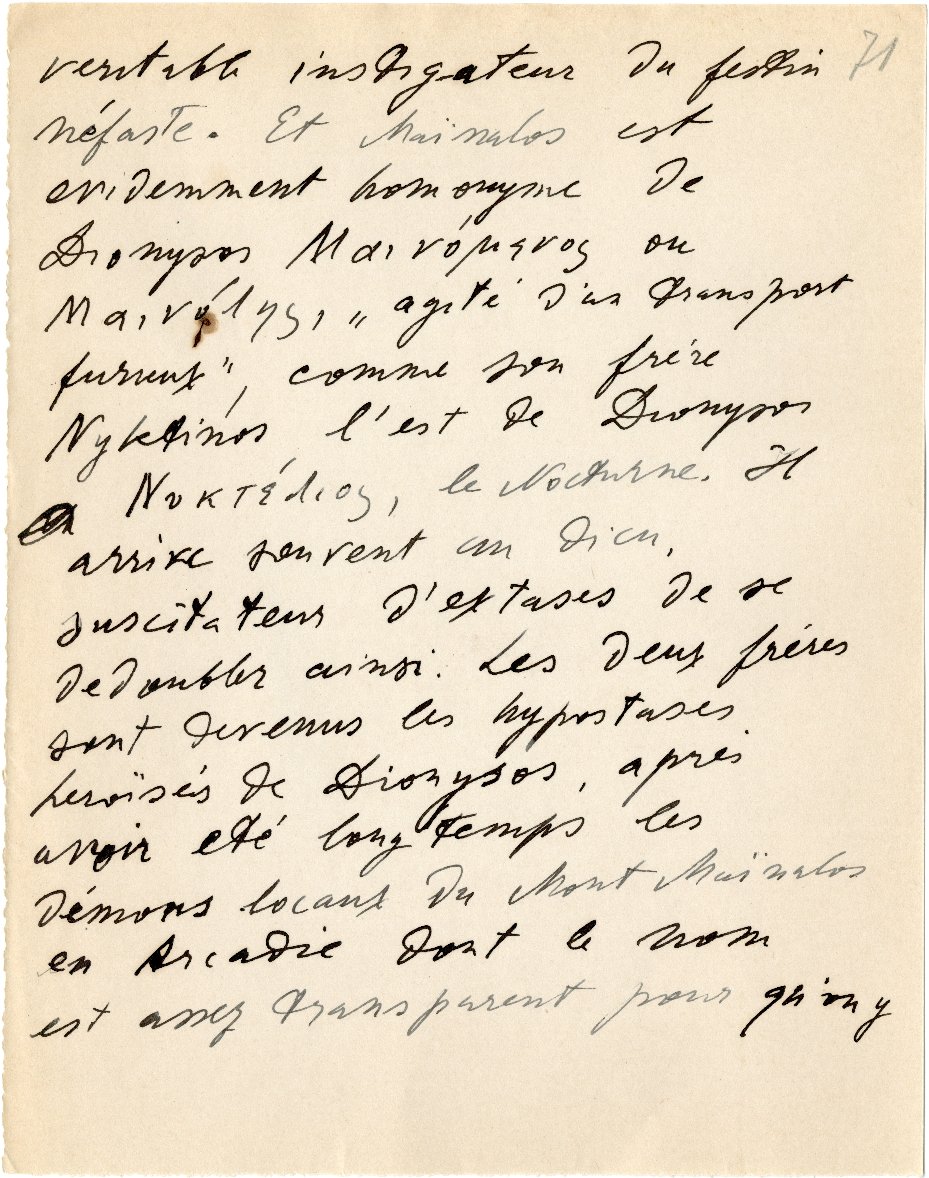 71
veritable instigateur du festin
néfaste. Et Maïnalos est
evidemment homonyme de
Dionysos Μαινόμενος ou
Μαινόλης, „agité d'un transport
furieux", comme son frère
Nyktinos l'est de Dionysos
Νυκτέλιος, le Nocturne. Il
arrive souvent à un dieu,
suscitateur d'extases de se
dedoubler ainsi. Les deux frères
sont devenus les hypostases
heroïsés de Dionysos, après
avoir eté longtemps les
démons locaux du Mont Maïnalos
en Arcadie dont le nom
est assez transparent pour qu'on y